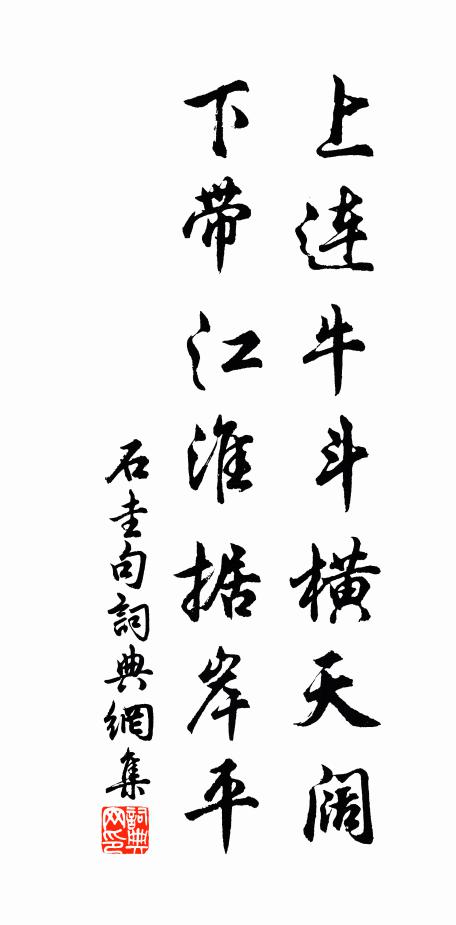 上连牛斗横天阔
下带江淮据岸平
石圭句詞典網集
詞典网印